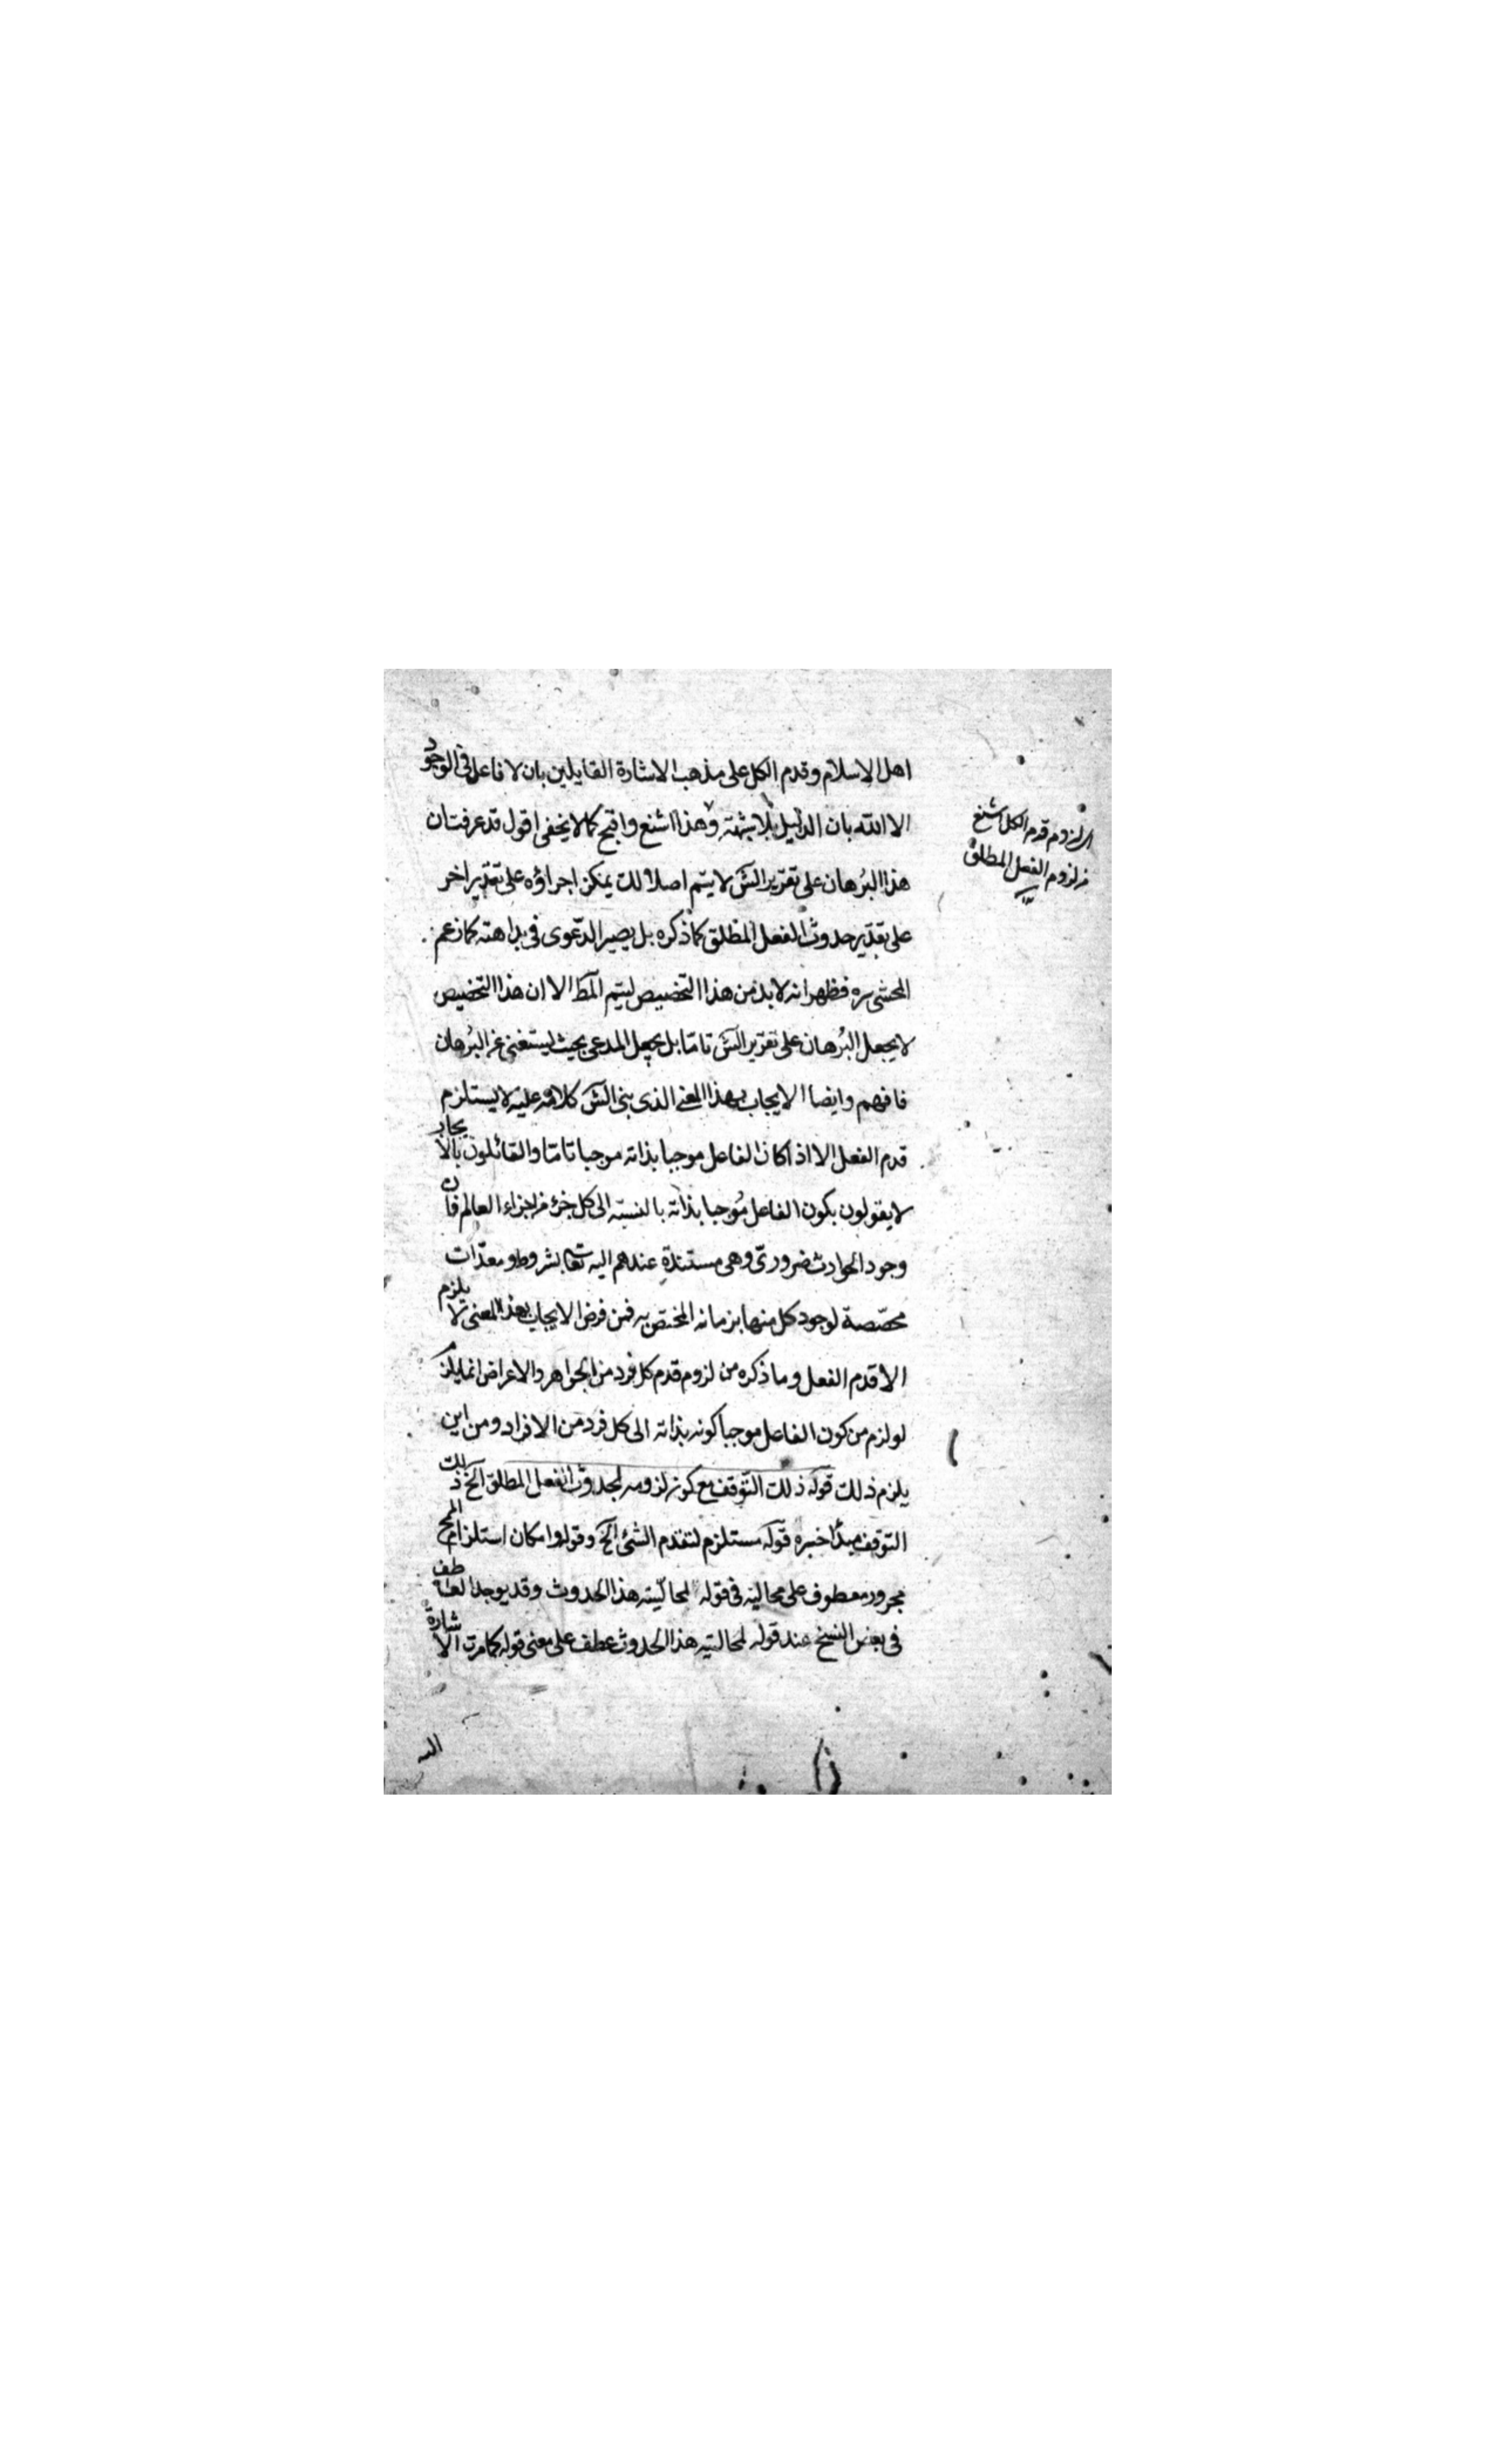 اهل الاسلام وقدم الكل على مذهب الاشارة القايلين بان لا فاعل فى الوجود
الا الله بان الدليل بلا شبهة وهذا اشنع واقبح كما لا يخفى اقول قد عرفت ان
هذا البرهان على تقرير الش لا يتم اصلا لك يمكن اجراؤه على تقدير اخر
على تقدير حدوث الفعل المطلق كما ذكره بل يصير الدعوى فى بداهته كما زعم
المحشى سره فظهر انه لا بد من هذا التخصيص ليتم المط الا ان هذا التخصيص
لا يجعل البرهان على تقرير الش تاما بل يجعل المدعى بحيث يستغنى عن البرهان
فافهم وايضا الايجاب بهذا المعنى الذى بنى الش كلامه عليه لا يستلزم
قدم الفعل الا اذا كان الفاعل موجبا بذاته موجبا تاما والقائلون بالايجاب
لا يقولون بكون الفاعل موجبا بذاته بالنسبة الى كل جزء من اجزاء العالم فان
وجود الحوادث ضرورى وهى مستندة عندهم اليه تعا بشروط ومعدات
مخصصة لوجود كل منها بزمانه المختص به فمن فرض الايجاب بهذا المعنى لا يلزم
الا قدم الفعل وما ذكره من لزوم قدم كل فرد من الجواهر والاعراض انما يلزم
لو لزم من كون الفاعل موجبا كونه بذاته الى كل فرد من الافراد ومن اين
يلزم ذلك قوله ذلك التوقف مع كونه لزومه لحدوث الفعل المطلق الخ ذلك
التوقف مبتدا خبره قوله مستلزم لتقدم الشئ الخ وقوله وامكان استلزام المح
مجرور معطوف على محالية فى قوله لمحالية هذا الحدوث وقد يوجد العاطف
فى بعض النسخ عند قوله لمحالية هذا الحدوث عطف على معنى قوله كما مرت الاشارة
اليه
اى لزوم قدم الكل اشنع
من لزوم الفعل المطلق